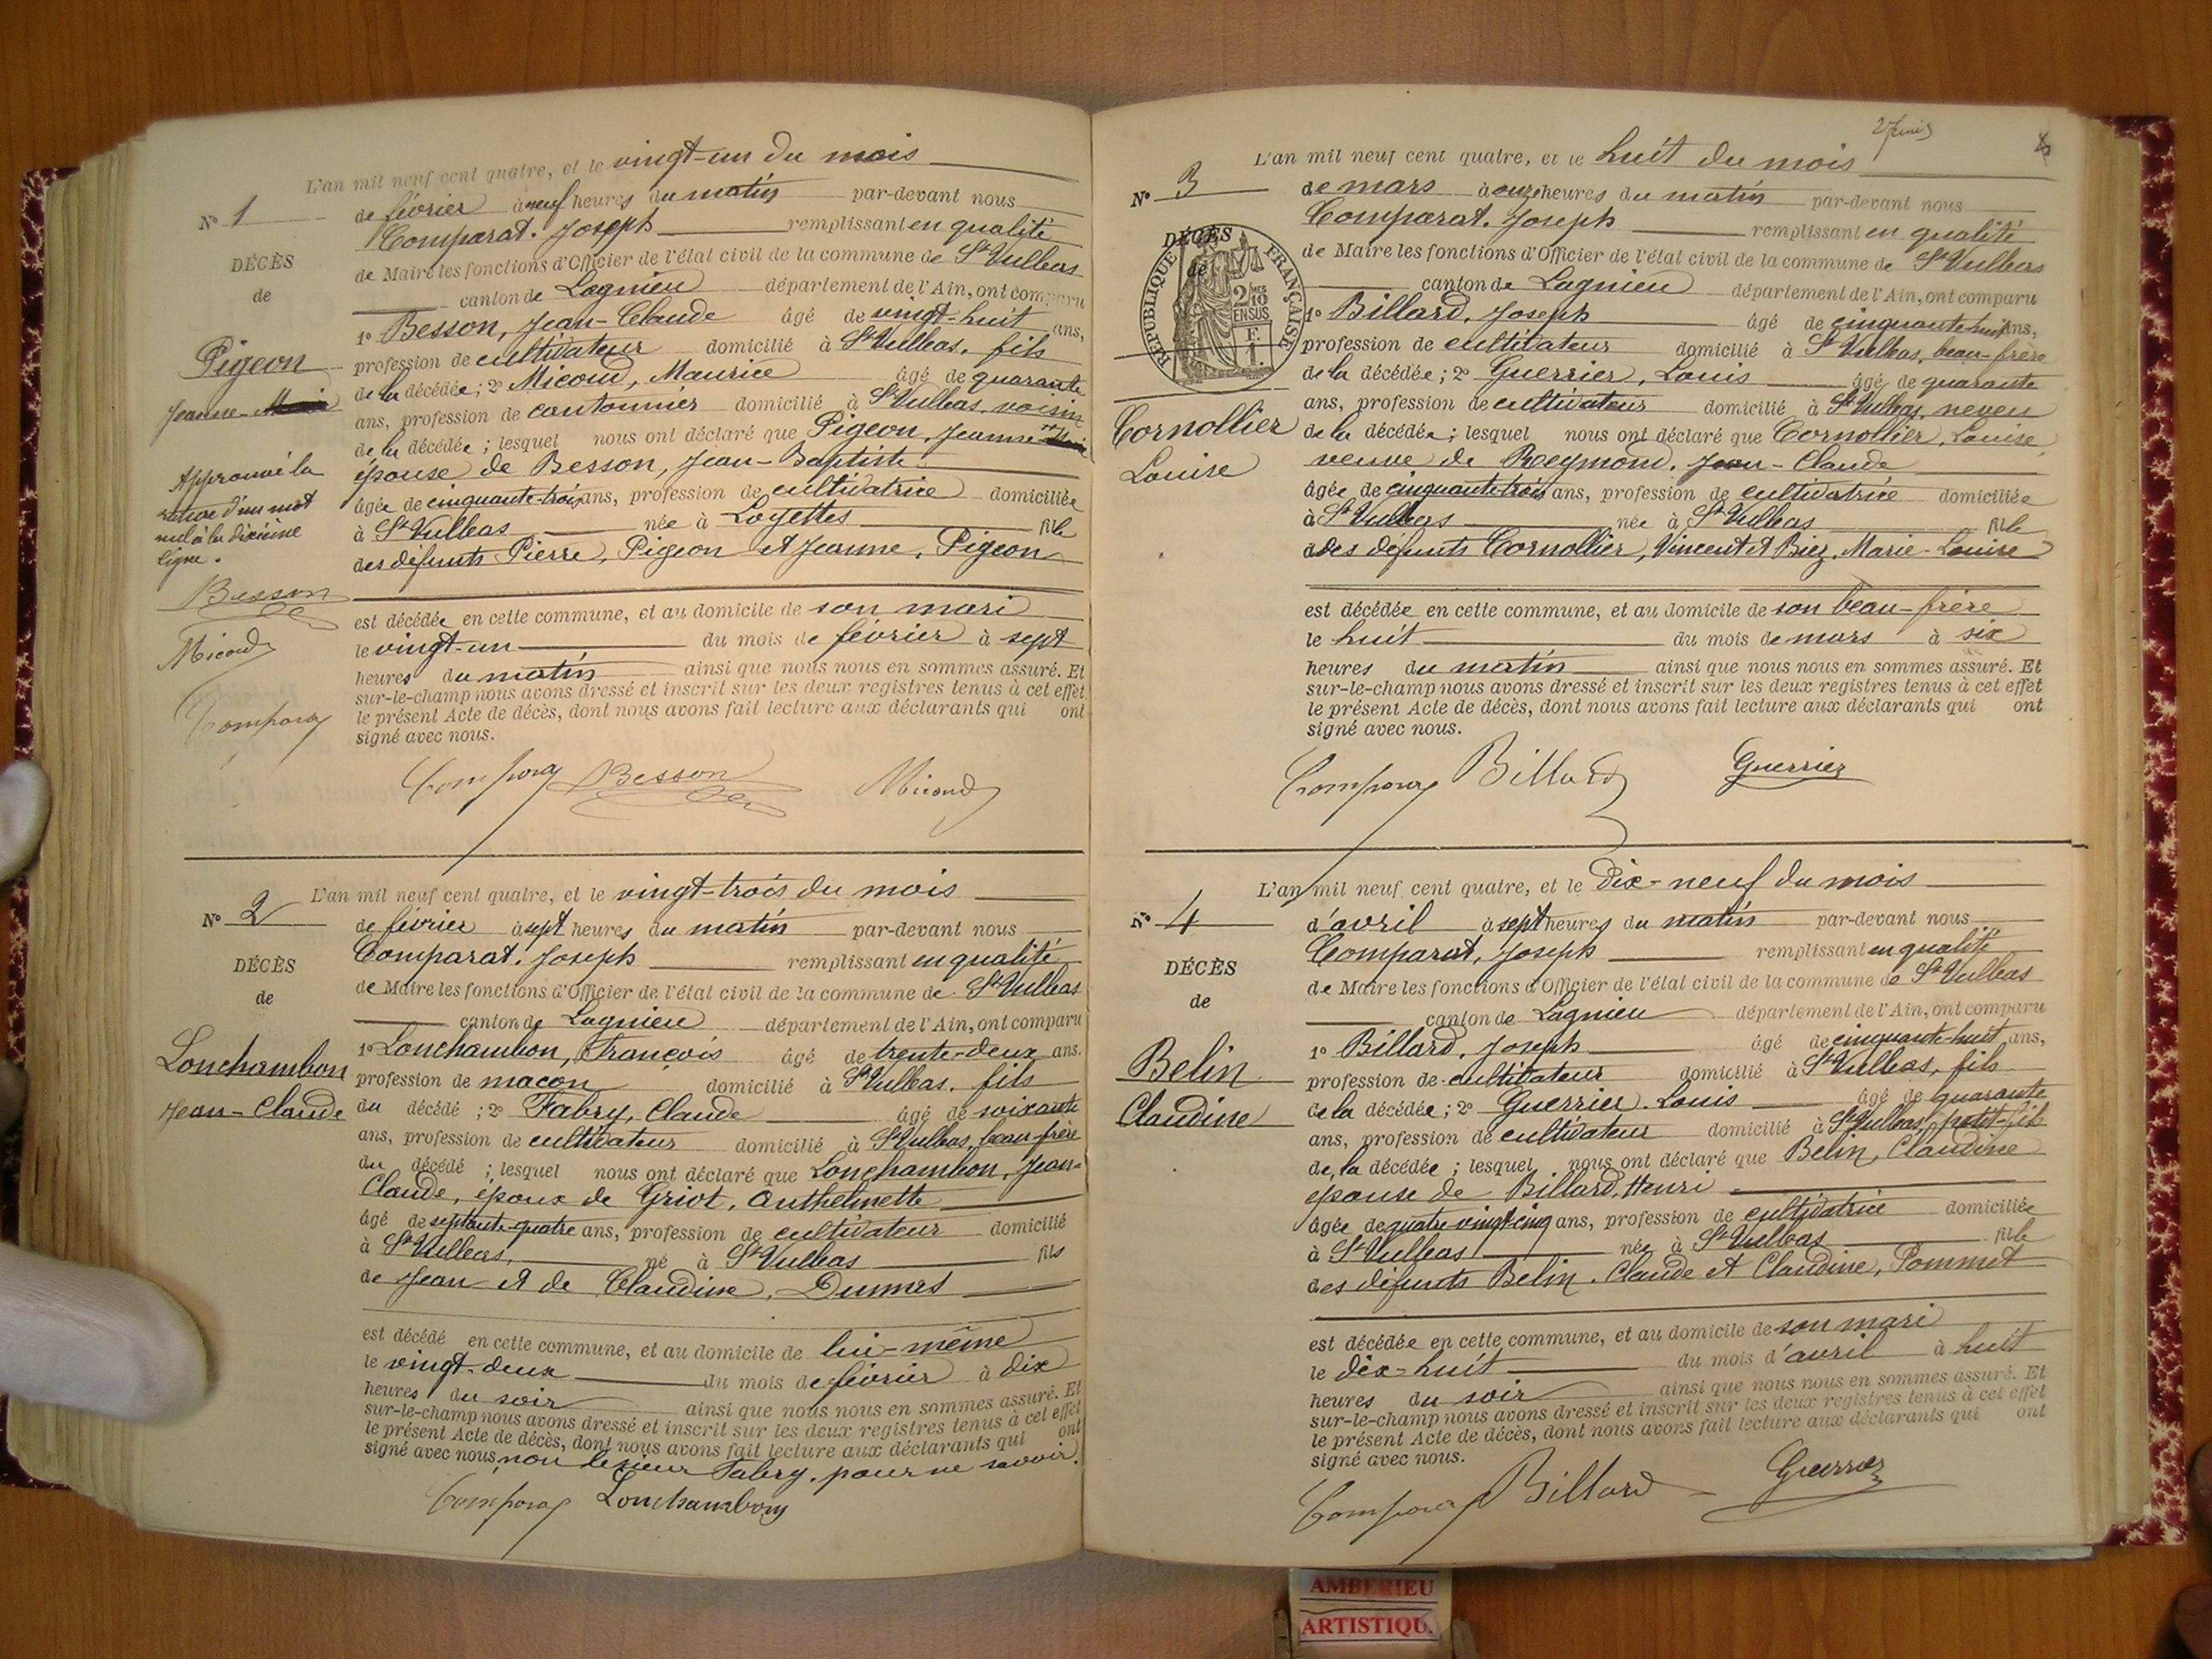 L'an mil neuf cent quatre, et le vingt-un du mois
N° 1
de février à neuf heures du matin par-devant nous
Comparat. Joseph remplissant en qualité
de Maire les fonctions d'Officier de l'état civil de la commune de St Vulbas
DÉCÈS
de
canton de Lagnieu département de l'Ain, ont comparu
1° Besson, Jean-Claude âgé de vingt-huit ans,
Pigeon
profession de cultivateur domicilié à St Vulbas, fils
de la décédée; 2° Micoud, Maurice âgé de quarante
Jeanne-
ans, profession de cantonnier domicilié à St Vulbas, voisin
de la décédée; lesquel nous ont déclaré que Pigeon, Jeanne
épouse de Besson, Jean-Baptiste
Approuvé la
rature d'un mot
nul à la dixième
ligne.
âgée de cinquante-trois ans, profession de cultivatrice domiciliée
à St Vulbas née à Loyettes fille
des défunts Pierre, Pigeon et Jeanne, Pigeon
Besson
Micoud
Comparat
est décédée en cette commune, et au domicile de son mari
le vingt-un du mois de février à sept
heures du matin ainsi que nous nous en sommes assuré. Et
sur-le-champ nous avons dressé et inscrit sur les deux registres tenus à cet effet
le présent Acte de décès, dont nous avons fait lecture aux déclarants qui ont
signé avec nous.
Comparat Besson Micoud
L'an mil neuf cent quatre, et le vingt-trois du mois
N° 2
de février à sept heures du matin par-devant nous
Comparat. Joseph remplissant en qualité
DÉCÈS
de
de Maire les fonctions d'Officier de l'état civil de la commune de St Vulbas
canton de Lagnieu département de l'Ain, ont comparu
1° Lonchambon, François âgé de trente-deux ans.
Lonchambon
Jean-Claude
profession de maçon domicilié à St Vulbas, fils
du décédé; 2° Fabry, Claude âgé de soixante
ans, profession de cultivateur domicilié à St Vulbas, beau-frère
du décédé; lesquel nous ont déclaré que Lonchambon, Jean-
Claude, époux de Griot, Anthelmette
âgé de septante-quatre ans, profession de cultivateur domicilié
à St Vulbas, né à St Vulbas fils
de Jean et de Claudine, Dumas
est décédé en cette commune, et au domicile de lui-même
le vingt-deux du mois de février à dix
heures du soir ainsi que nous nous en sommes assuré. Et
sur-le-champ nous avons dressé et inscrit sur les deux registres tenus à cet effet
le présent Acte de décès, dont nous avons fait lecture aux déclarants qui ont
signé avec nous, non le sieur Fabry, pour ne savoir.
Comparat Lonchambon
L'an mil neuf cent quatre, et le huit du mois
N° 3
de mars à onze heures du matin par-devant nous
Comparat. Joseph remplissant en qualité
de Maire les fonctions d'Officier de l'état civil de la commune de St Vulbas
DÉCÈS
de
RÉPUBLIQUE FRANÇAISE
2/10 EN SUS
F. 1.
canton de Lagnieu département de l'Ain, ont comparu
1° Billard, Joseph âgé de cinquante-huit ans,
profession de cultivateur domicilié à St Vulbas, beau-frère
de la décédée; 2° Guerrier, Louis âgé de quarante
ans, profession de cultivateur domicilié à St Vulbas, neveu
Cornollier
Louise
de la décédée; lesquel nous ont déclaré que Cornollier, Louise
veuve de Reymond. Jean-Claude
âgée de cinquante-trois ans, profession de cultivatrice domiciliée
à St Vulbas née à St Vulbas fille
des défunts Cornollier, Vincent et Biez, Marie-Louise
est décédée en cette commune, et au domicile de son beau-frère
le huit du mois de mars à six
heures du matin ainsi que nous nous en sommes assuré. Et
sur-le-champ nous avons dressé et inscrit sur les deux registres tenus à cet effet
le présent Acte de décès, dont nous avons fait lecture aux déclarants qui ont
signé avec nous.
Comparat Billard Guerrier
L'an mil neuf cent quatre, et le Dix-neuf du mois
N° 4
d'avril à sept heures du matin par-devant nous
Comparat, Joseph remplissant en qualité
DÉCÈS
de
de Maire les fonctions d'Officier de l'état civil de la commune de St Vulbas
canton de Lagnieu département de l'Ain, ont comparu
1° Billard, Joseph âgé de cinquante-huit ans,
Belin
Claudine
profession de cultivateur domicilié à St Vulbas, fils
de la décédée; 2° Guerrier. Louis âgé de quarante
ans, profession de cultivateur domicilié à St Vulbas, petit-fils
de la décédée; lesquel nous ont déclaré que Belin, Claudine
épouse de Billard, Henri
âgée de quatre vingt cinq ans, profession de cultivatrice domiciliée
à St Vulbas née à St Vulbas fille
des défunts Belin, Claude et Claudine, Pommet
est décédée en cette commune, et au domicile de son mari
le dix-huit du mois d'avril à huit
heures du soir ainsi que nous nous en sommes assuré. Et
sur-le-champ nous avons dressé et inscrit sur les deux registres tenus à cet effet
le présent Acte de décès, dont nous avons fait lecture aux déclarants qui ont
signé avec nous.
Comparat Billard Guerrier
AMBERIEU
ARTISTIQU